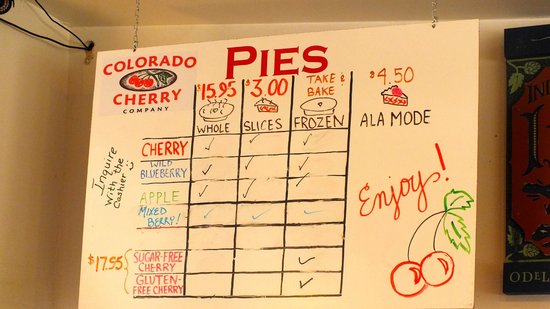 COLORADO
CHERRY
COMPANY
PIES
$15.95
$3.00
TAKE &
BAKE
$4.50
WHOLE
SLICES
FROZEN
ALA MODE
Inquire
With the
Cashier
CHERRY
WILD
BLUEBERRY
APPLE
MIXED
BERRY!
Enjoy!
$17.95
SUGAR-FREE
CHERRY
GLUTEN-
FREE CHERRY
IN
ODEL